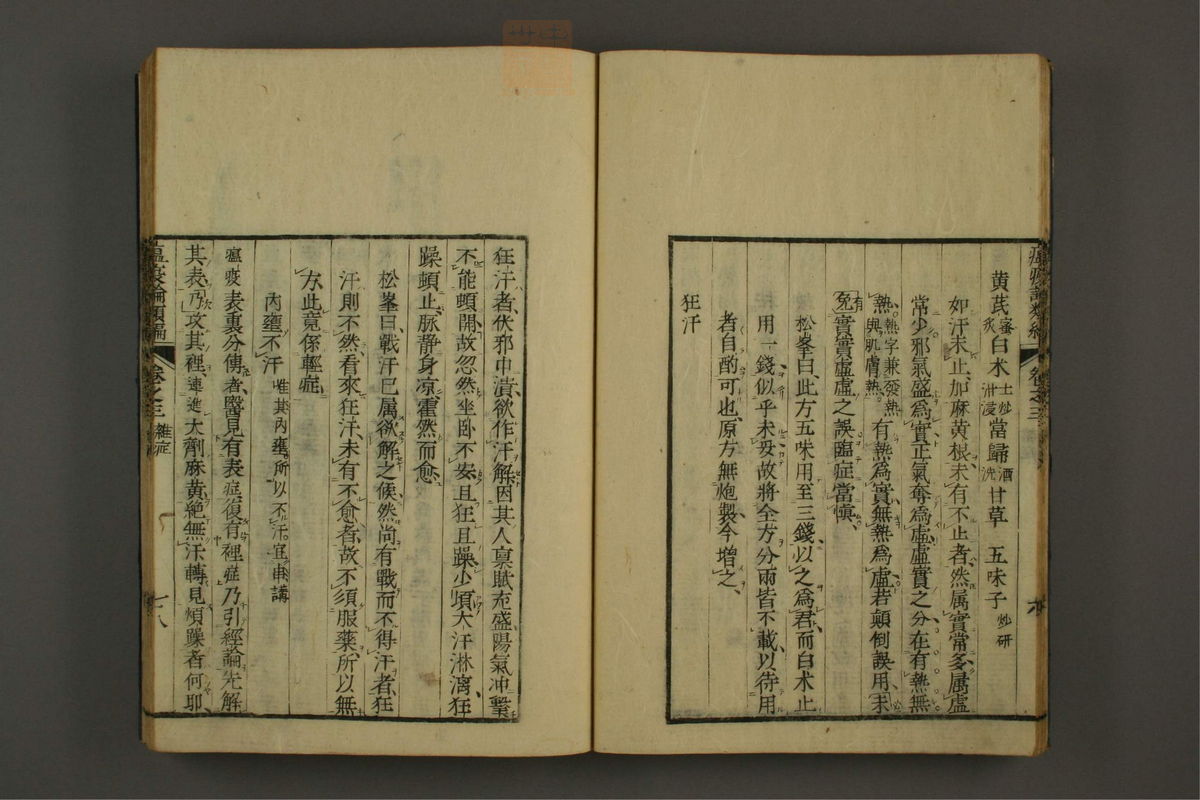 黄芪蜜炙白朮土炒泔浸當歸酒洗甘草五味子炒研
如汗未止加麻黄根未有不止者然属實常多属虛
常少邪氣盛爲實正氣奪爲虛虛實之分在有熱無
熱熱字兼發熱與肌膚熱有熱爲實無熱爲虛若顛倒誤用未
免有實實虛虛之誤臨症當慎
松峯曰此方五味用至三錢以之爲君而白朮止
用一錢似乎未妥故將全方分兩皆不載以待用
者自酌可也原方無炮製今增之
狂汗
狂汗者伏邪中潰欲作汗解因其人禀賦充盛陽氣冲擊
不能頓開故忽然坐卧不安且狂且躁少頃大汗淋漓狂
躁頓止脉静身凉霍然而愈
松峯曰戰汗已属欲解之候然尚有戰而不得汗者狂
汗則不然看來狂汗未有不愈者故不須服藥所以無
方此竟係輕症
内壅不汗惟其内壅所以不汗宜串講
瘟疫表裏分傳者醫見有表症復有裡症乃引經論先解
其表乃攻其裡連進大劑麻黄絶無汗轉見煩躁者何耶
瘟疫論類編 卷之三 雜症